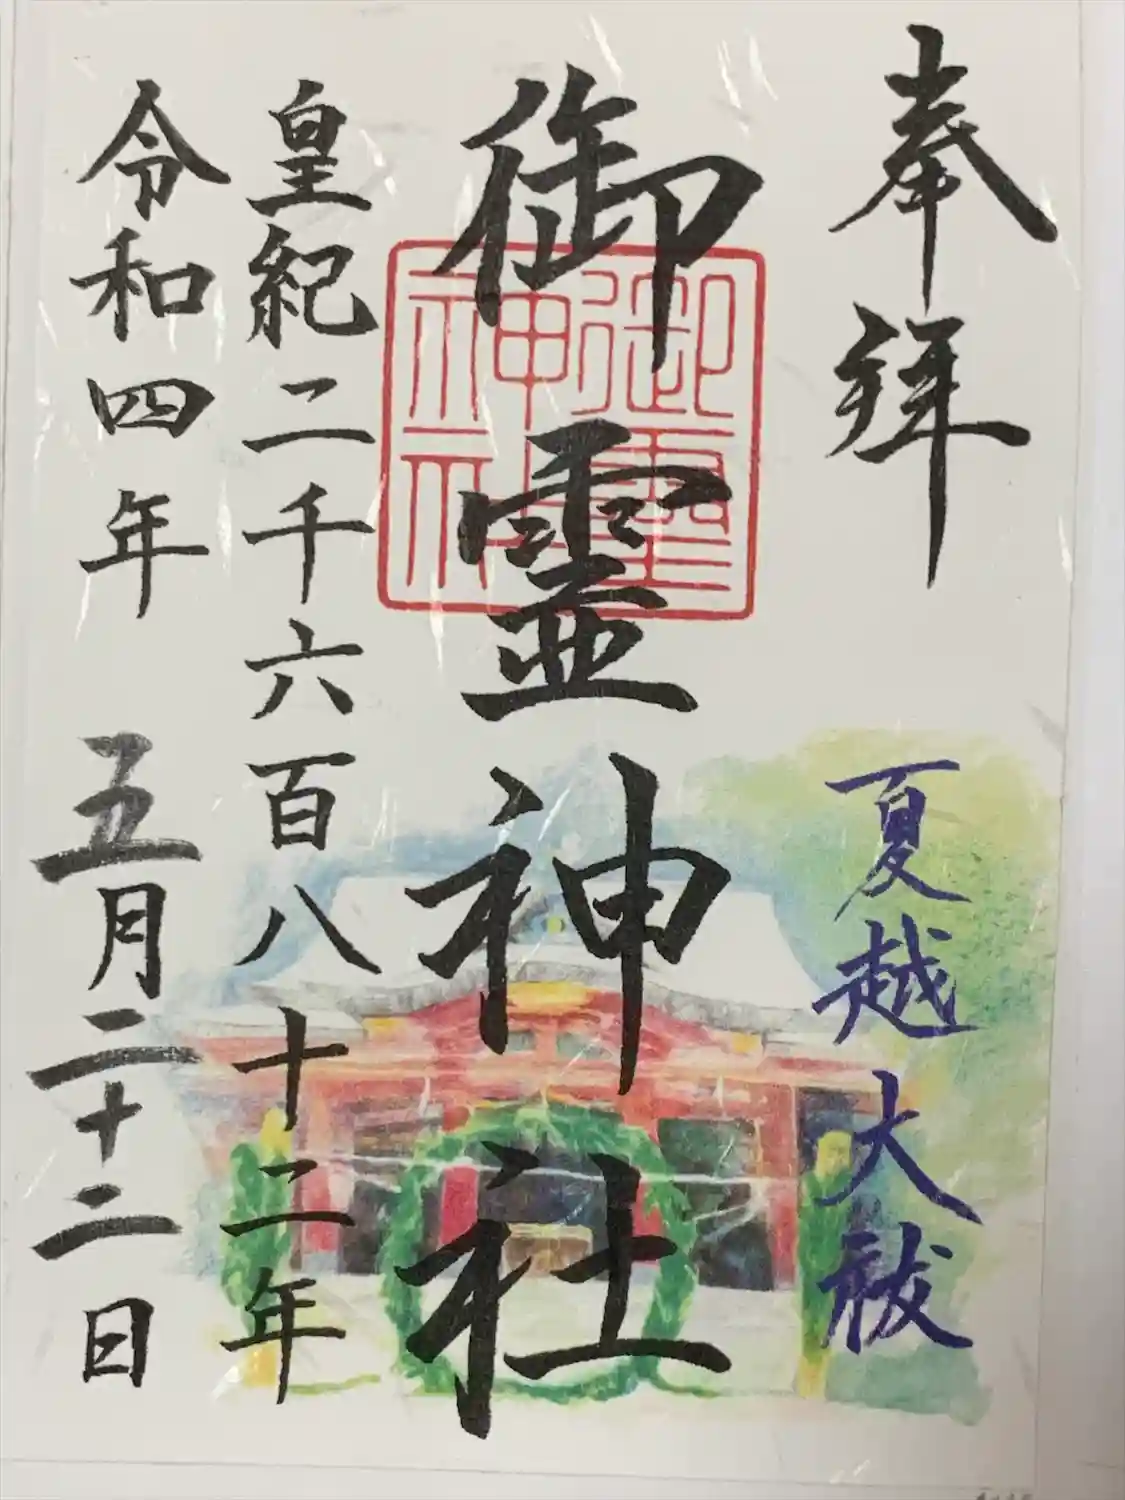 奉拝
夏越大祓
御靈神社
御靈神社
皇紀二千六百八十二年
令和四年 五月二十二日